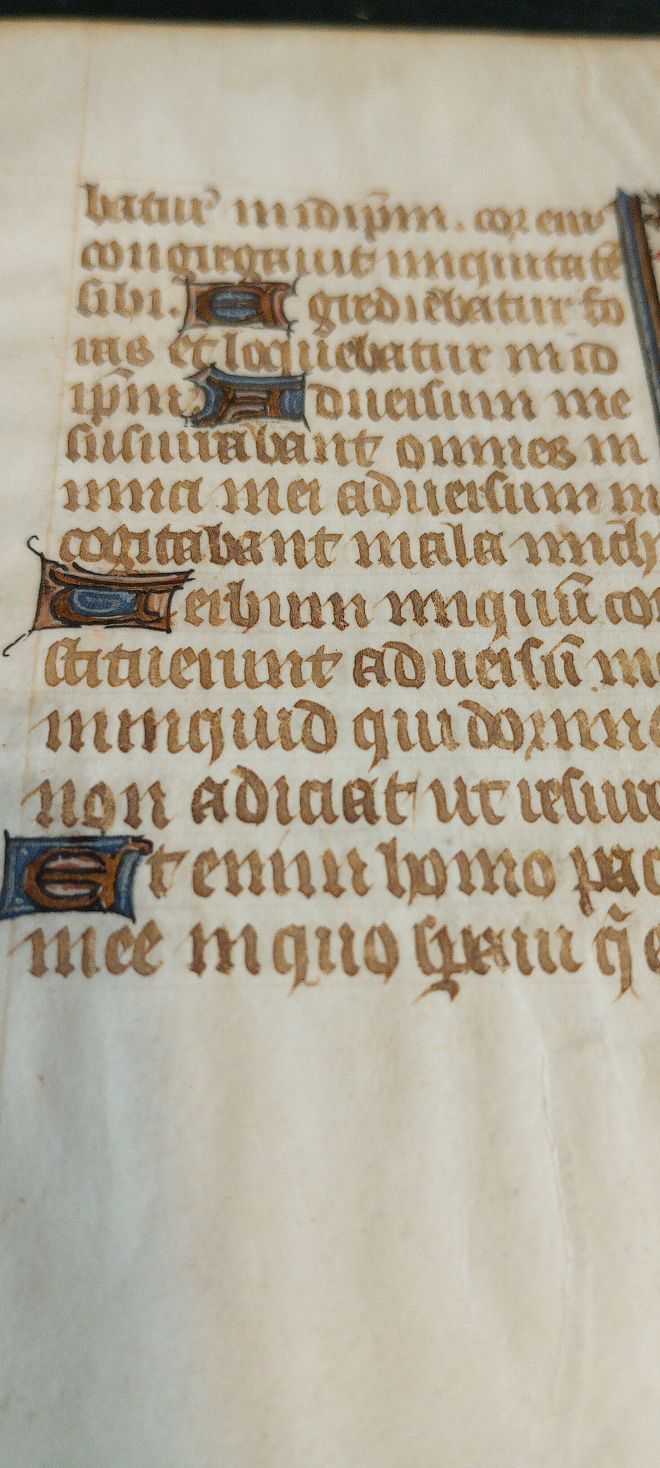 batur in idip̄m. cor eius
congregauit iniquitatē
sibi. Egrediēbatur fo
ras et loquebatur in id
ip̄m. Aduersum me
susurrabant omnes in
imici mei aduersum m
cogitabant mala mich
Uerbum iniquū con
stituerunt aduersū m
numquid qui dormi
non adiciat ut resur
Et enim homo pac
mee in quo speraui q̄ e